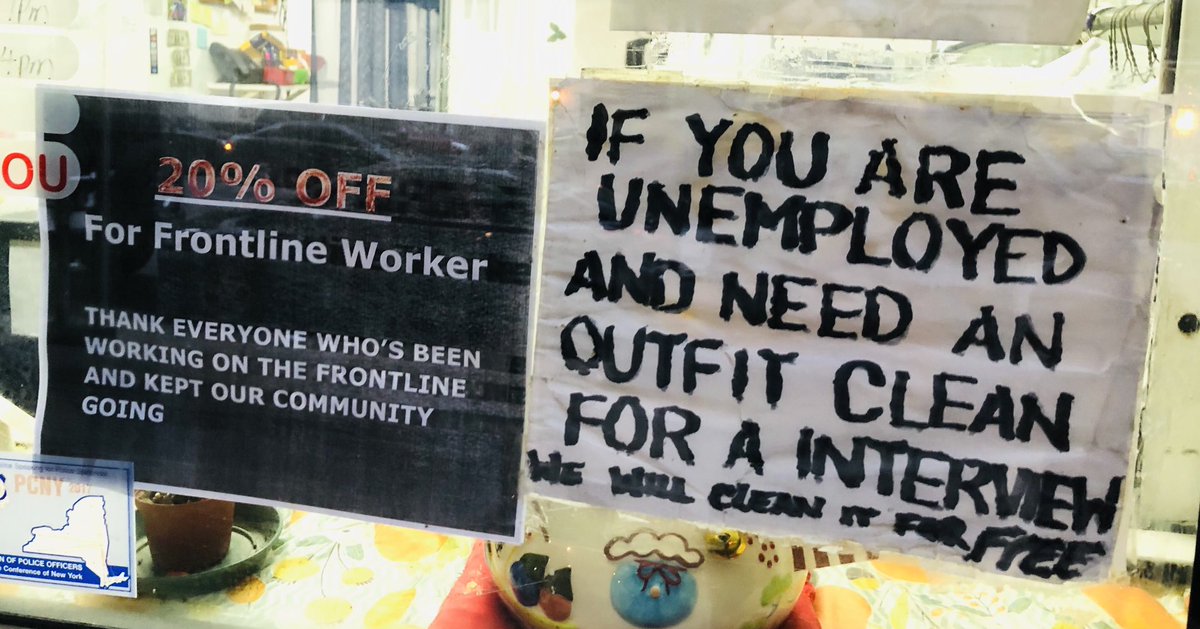 PM
4PM
OU
20% OFF
For Frontline Worker
THANK EVERYONE WHO'S BEEN
WORKING ON THE FRONTLINE
AND KEPT OUR COMMUNITY
GOING
IF YOU ARE
UNEMPLOYED
AND NEED AN
OUTFIT CLEAN
FOR A INTERVIEW
WE WILL CLEAN IT FOR FREE
PCNY
N OF POLICE OFFICERS
Conference of New York